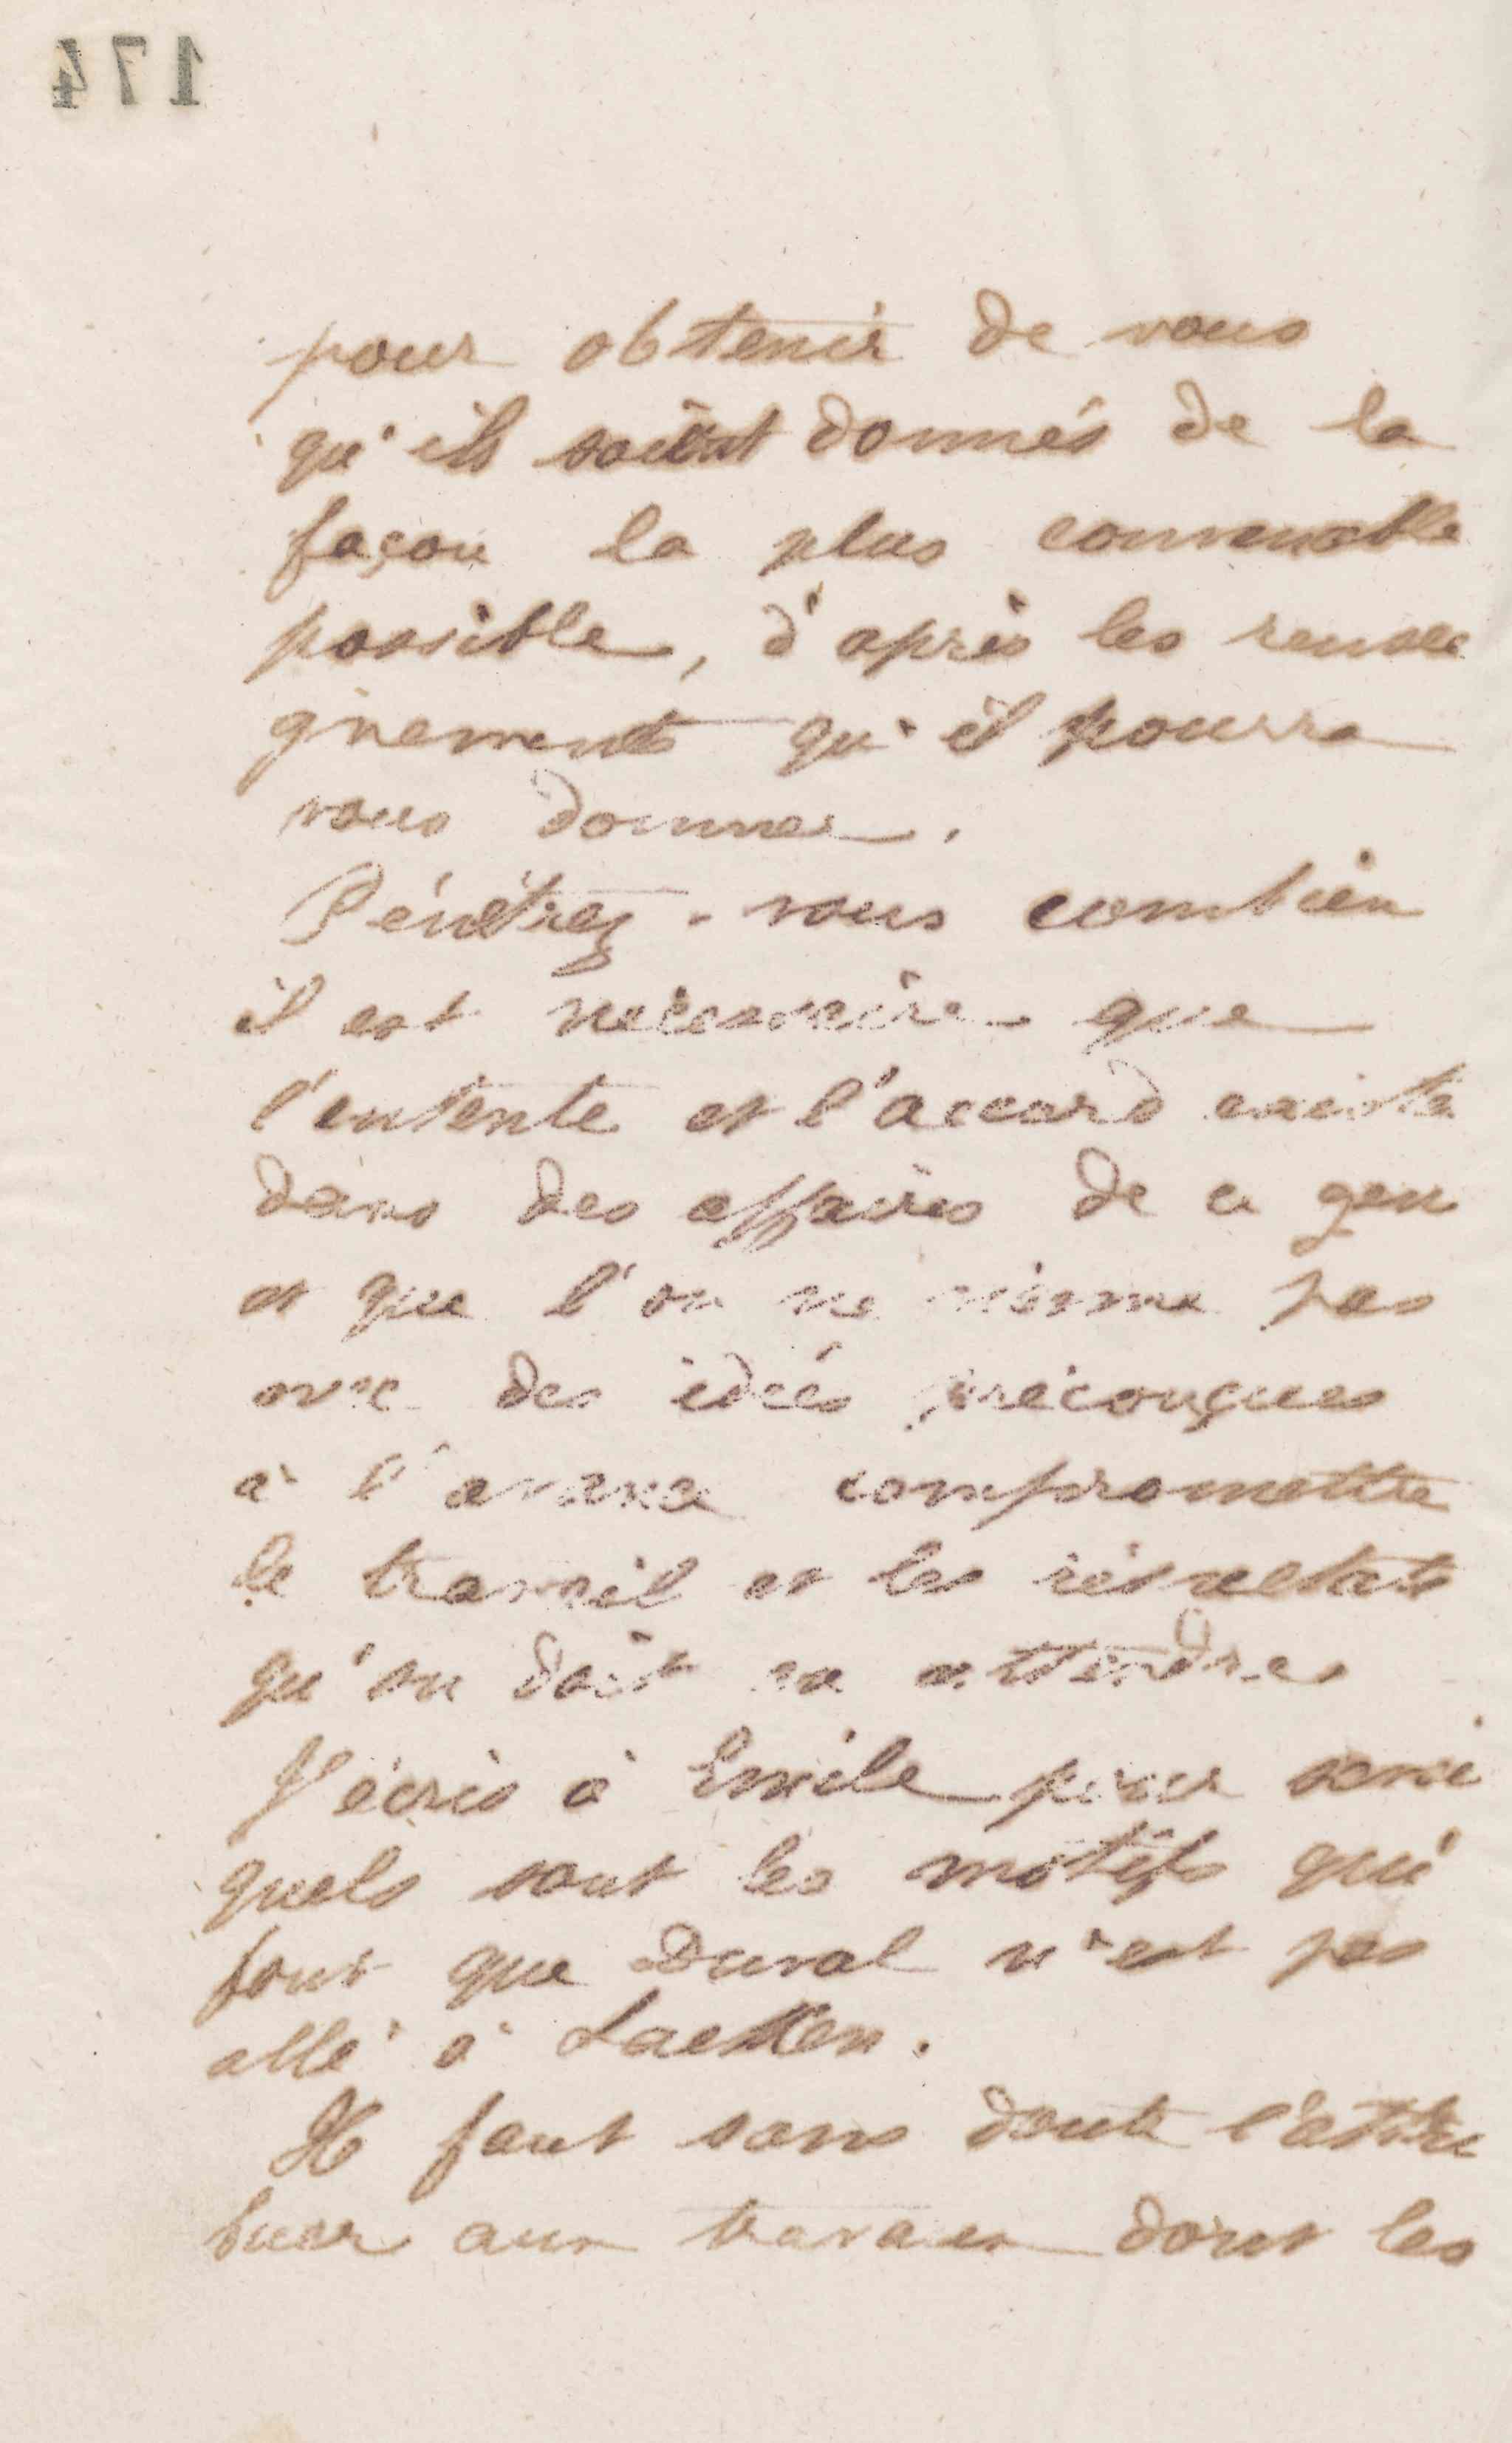 174
pour obtenir de vous
qu'ils soient donnés de la
façon la plus convenable
possible, d'après les rensei
gnements qu'il pourra
vous donner.
Pénétrez-vous combien
il est nécessaire que
l'entente et l'accord existe
dans des affaires de ce gen
et que l'on ne vienne pas
avec des idées préconçues
à l'avance compromettre
le travail et les résultats
qu'on doit en attendre
J'écris à Emile pour savoi
quels sont les motifs qui
font que Duval n'est pas
allé à Laeken.
Il faut sans doute l'attri
buer aux travaux dont les